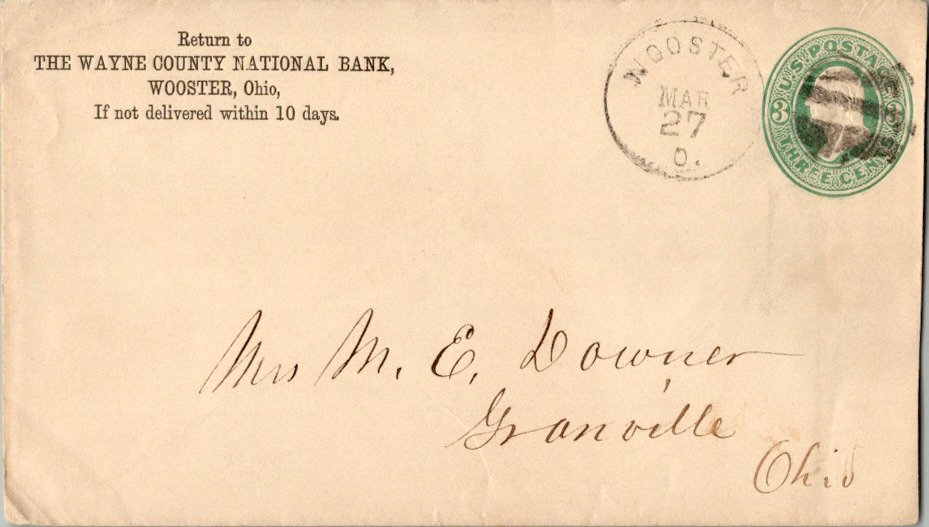 Return to
THE WAYNE COUNTY NATIONAL BANK,
WOOSTER, Ohio,
If not delivered within 10 days.
WOOSTER
MAR
27
O.
U.S. POSTAGE
3
THREE CENTS
Mrs M. E. Downer
Granville
Ohio